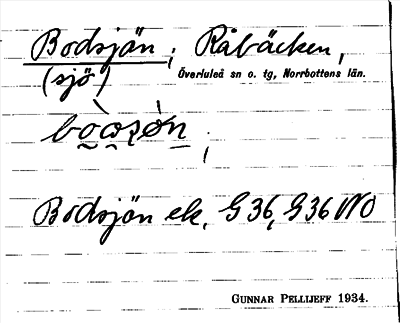 Bodsjön; Råbäcken,
(sjö) Överluleå sn o. tg, Norrbottens län.
Bodsjön ek. G36, G36 NO
GUNNAR PELLIJEFF 1934.